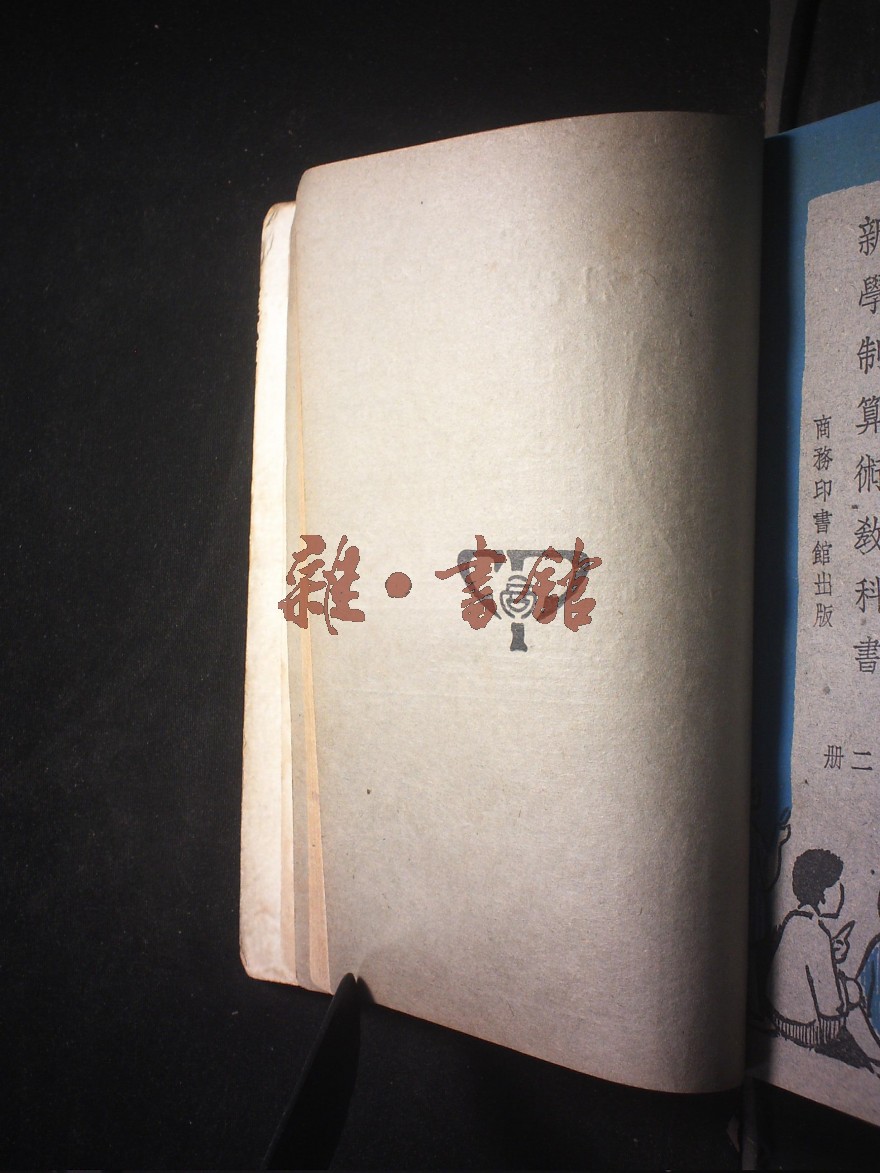 新學制算術教科書
二
册
商務印書館出版
雜·書館
商